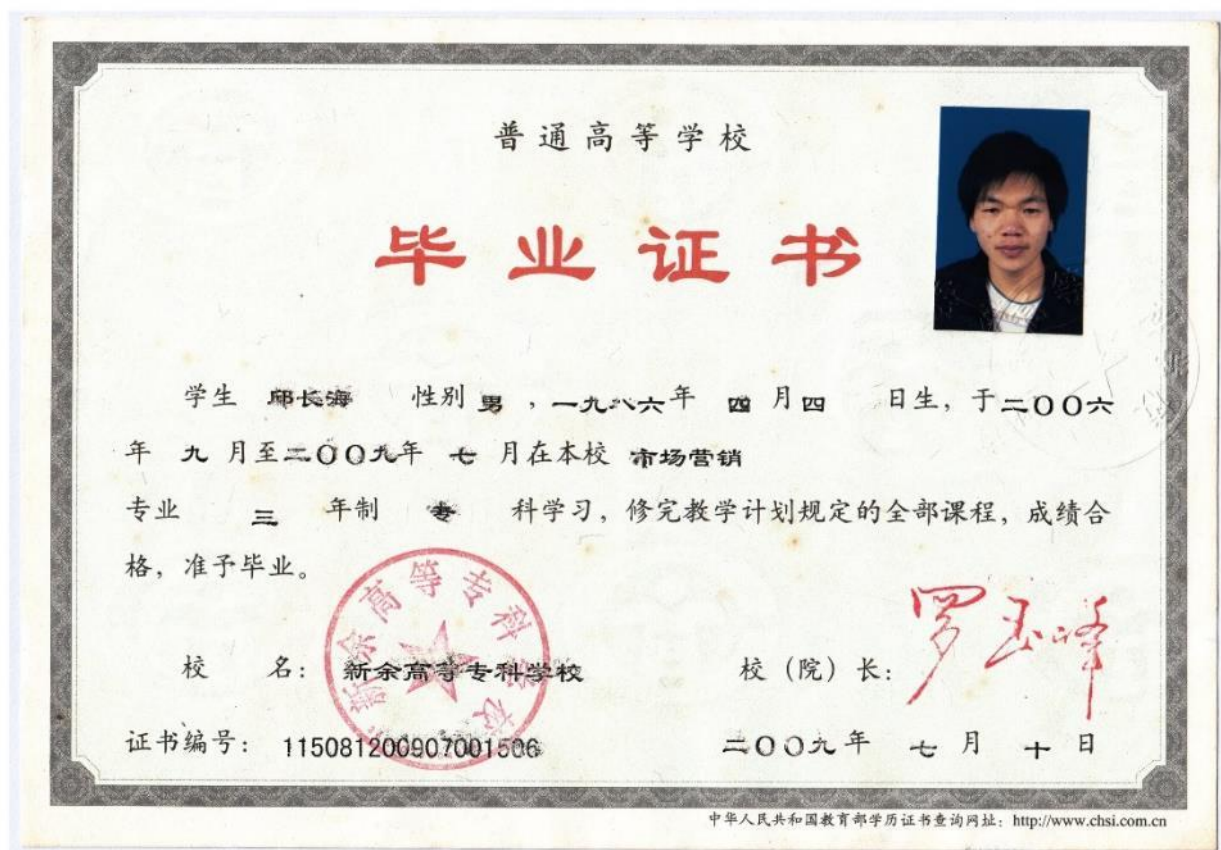 普通高等学校
毕业证书
学生 邱长海 性别 男 ,一九八六年 四 月 四 日生, 于二〇〇六
年 九 月至二〇〇九年 七 月在本校 市场营销
专业 三 年制 专 科学习, 修完教学计划规定的全部课程, 成绩合
格, 准予毕业。
新余高等专科学校
校 名: 新余高等专科学校 校 (院) 长: 罗玉峰
证书编号: 115081200907001506 二〇〇九年 七 月 十 日
中华人民共和国教育部学历证书查询网址: http://www.chsi.com.cn